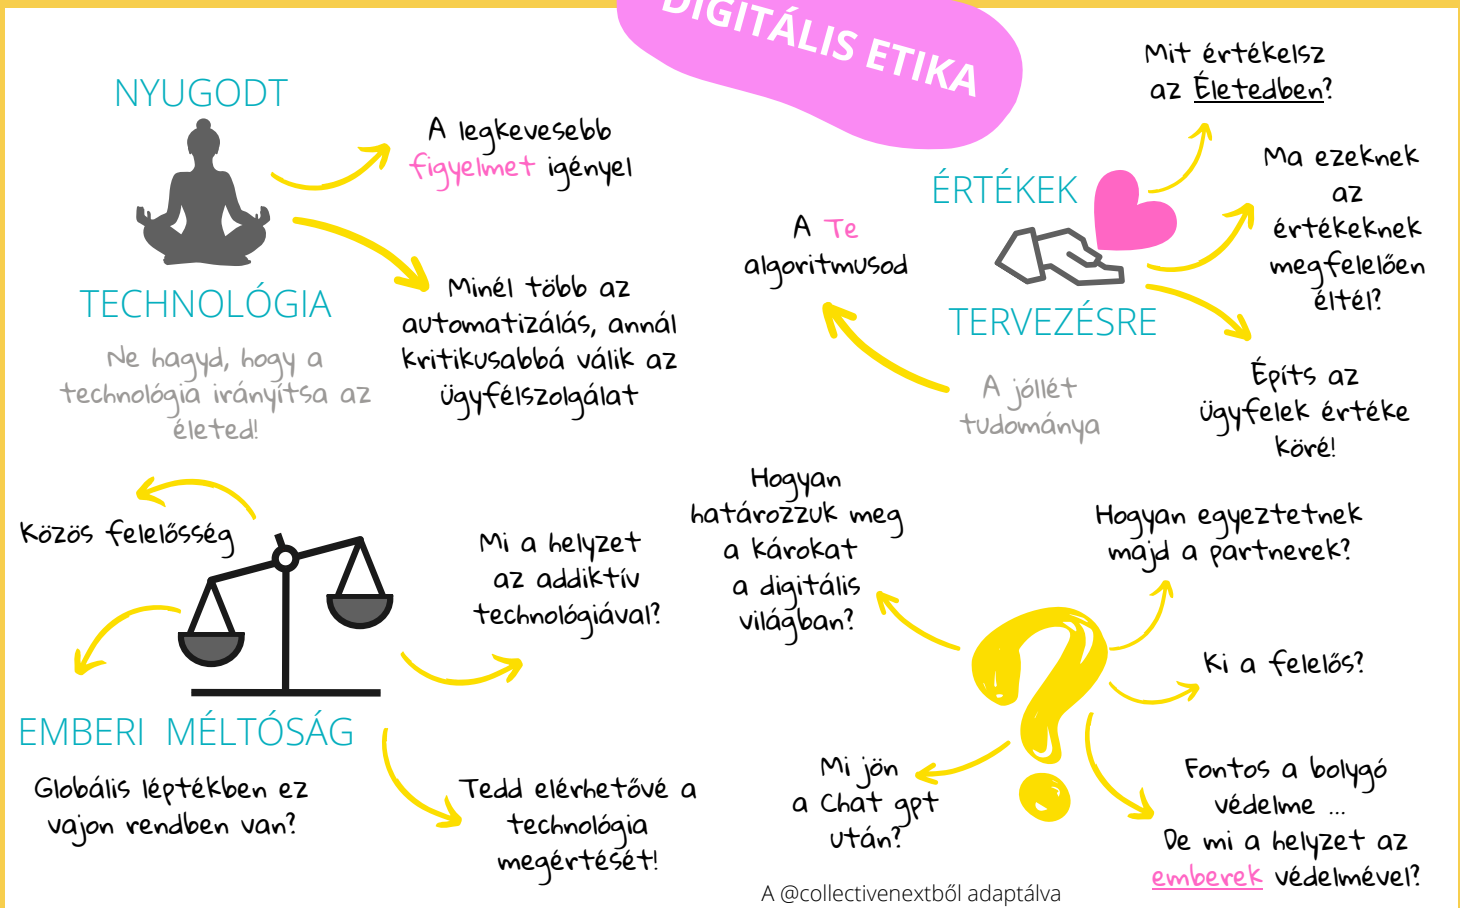 DIGITÁLIS ETIKA
NYUGODT
TECHNOLÓGIA
Ne hagyd, hogy a
technológia irányítsa az
életed!
A legkevesebb
figyelmet igényel
Minél több az
automatizálás, annál
kritikusabbá válik az
ügyfélszolgálat
ÉRTÉKEK
TERVEZÉSRE
A jóllét
tudománya
A Te
algoritmusod
Mit értékelsz
az Életedben?
Ma ezeknek
az
értékeknek
megfelelően
éltél?
Építs az
ügyfelek értéke
köré!
Közös felelősség
EMBERI MÉLTÓSÁG
Globális léptékben ez
vajon rendben van?
Mi a helyzet
az addiktív
technológiával?
Tedd elérhetővé a
technológia
megértését!
Hogyan
határozzuk meg
a károkat
a digitális
világban?
Hogyan egyeztetnek
majd a partnerek?
Ki a felelős?
Mi jön
a Chat gpt
után?
Fontos a bolygó
védelme ...
De mi a helyzet az
emberek védelmével?
A @collectivenextből adaptálva